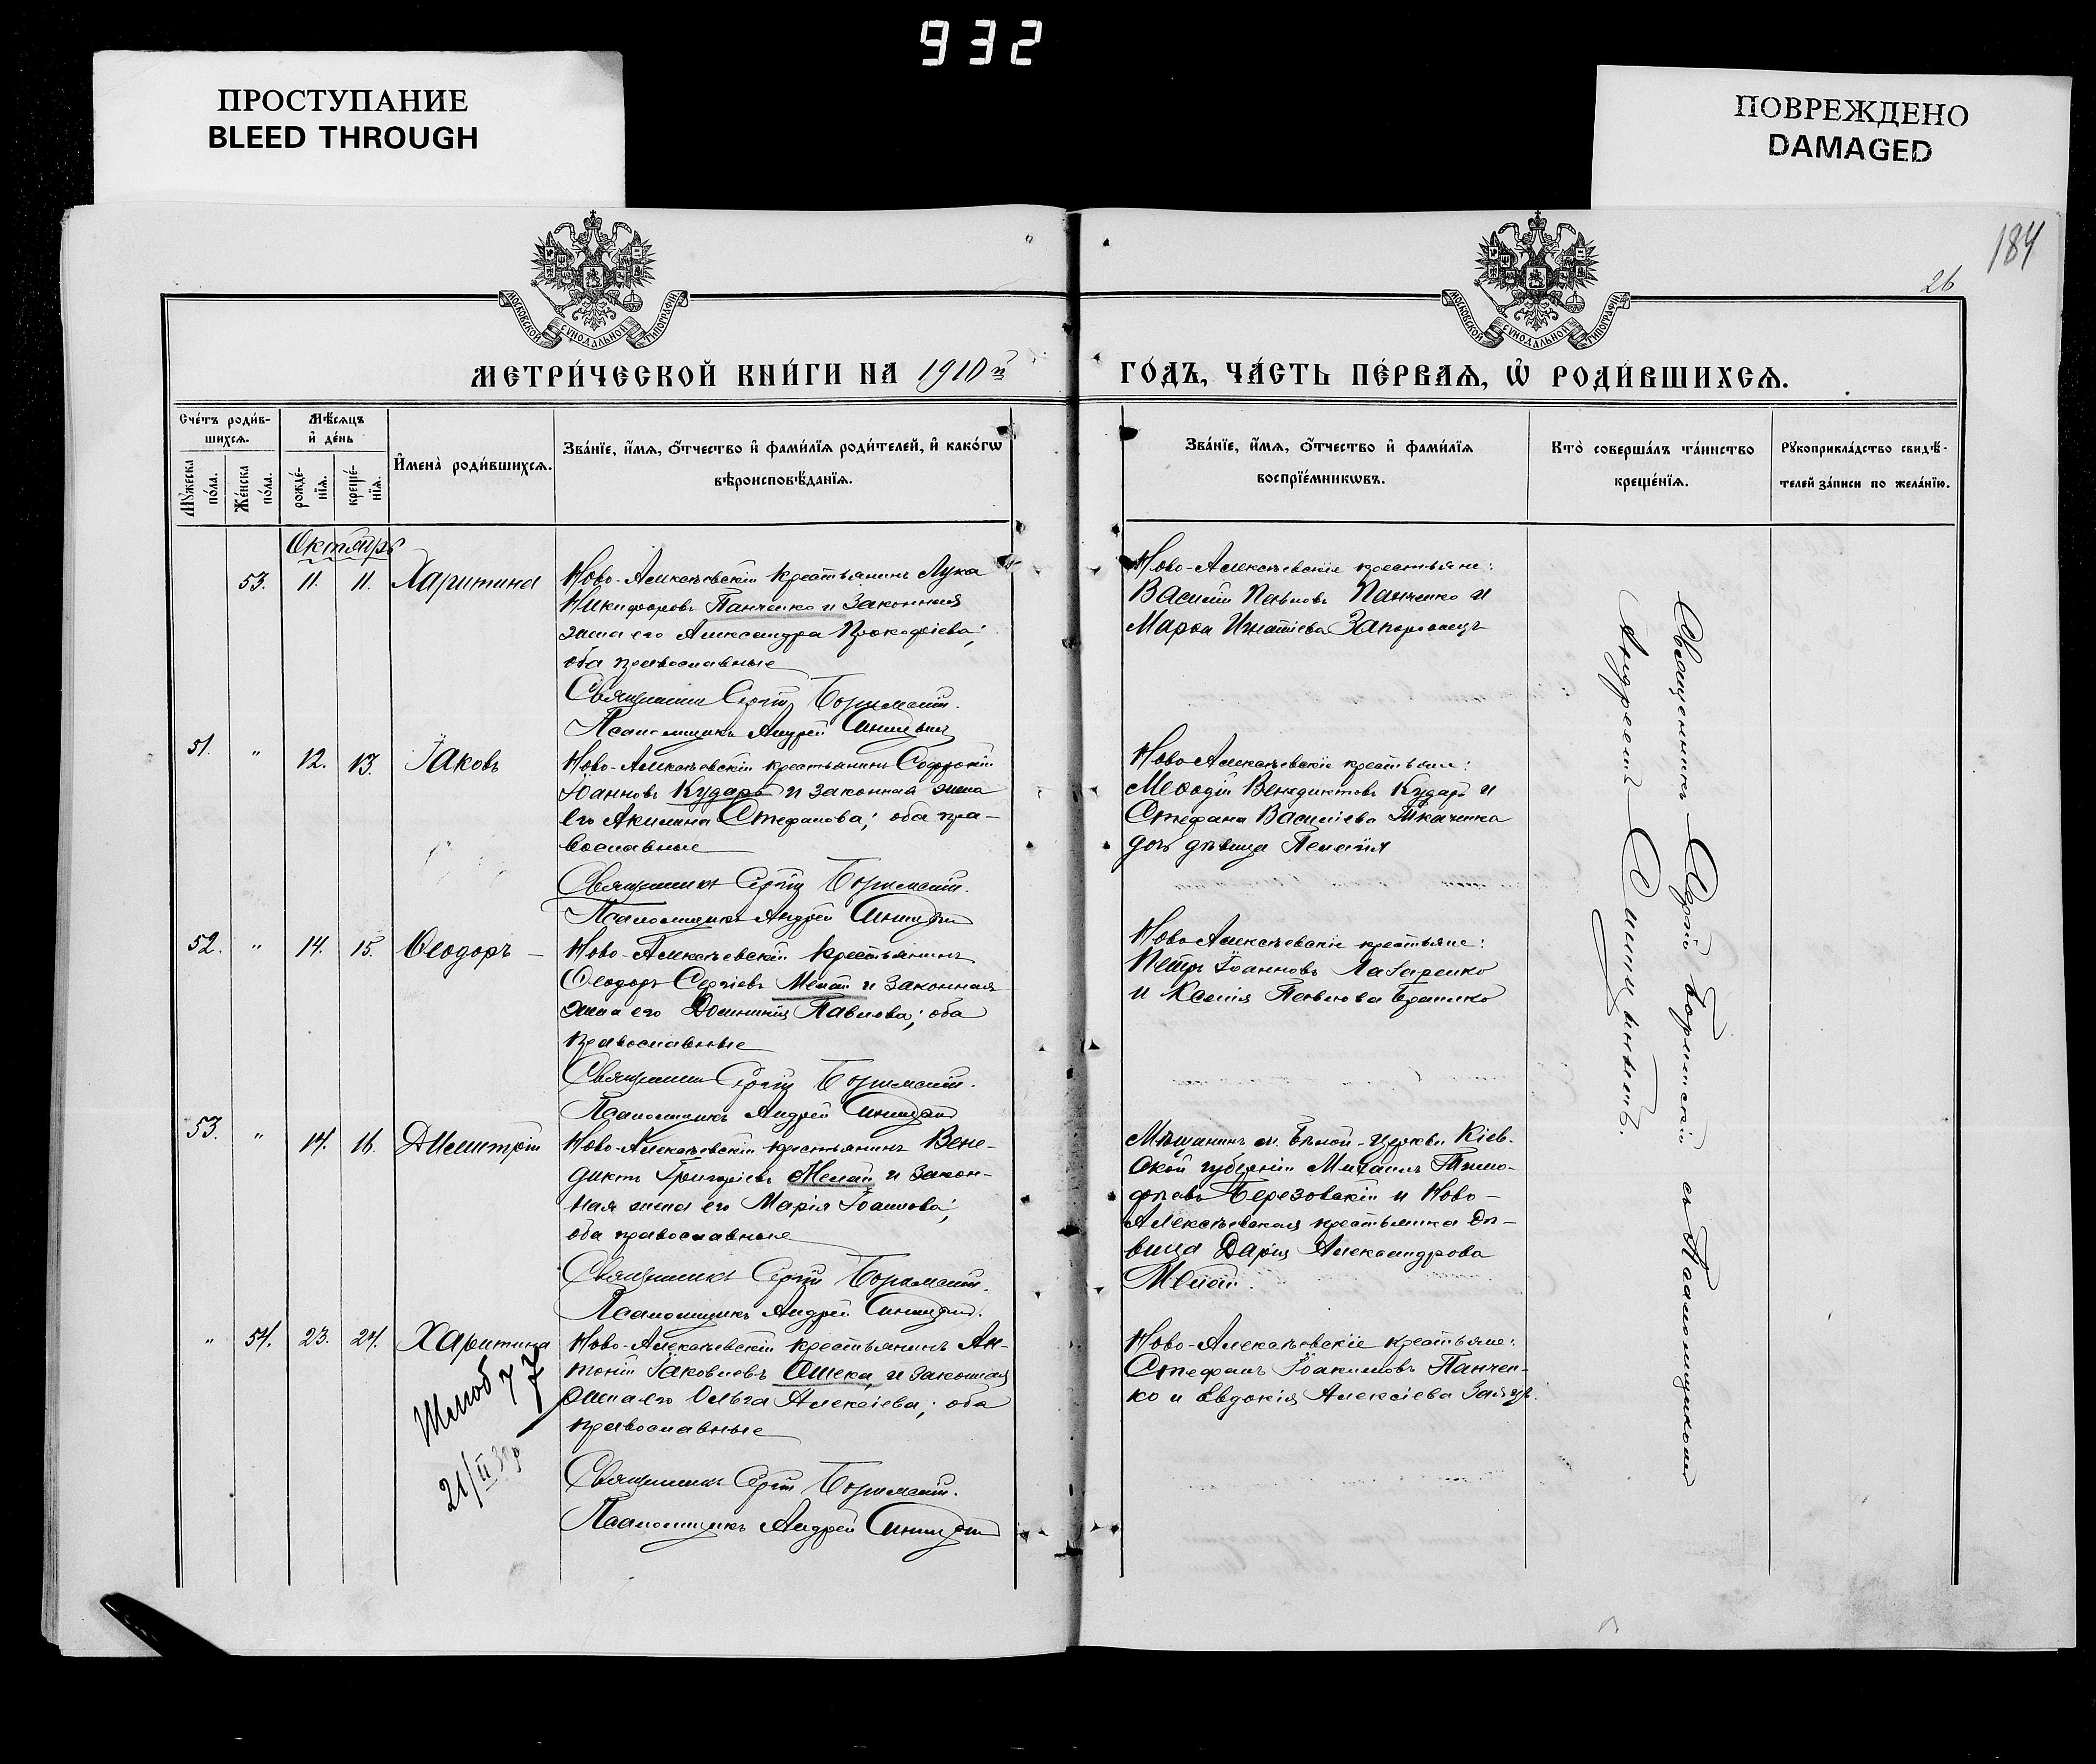 932
ПРОСТУПАНИЕ
BLEED THROUGH
ПОВРЕЖДЕНО
DAMAGED
184
26
МОСКОВСКОЙ СѴНОДАЛЬНОЙ ТИПОГРАФІИ
МОСКОВСКОЙ СѴНОДАЛЬНОЙ ТИПОГРАФІИ
МЕТРИ́ЧЕСКОЙ КНИ́ГИ НА 1910й
ГО́ДЪ, ЧА́СТЬ ПЕ́РВАѦ, Ѽ РОДИ́ВШИХСѦ.
Сче́тъ роди́в-
шихсѧ.
Мꙋ́жеска по́ла.
Же́нска по́ла.
Мѣ́сѧцъ
и҆ де́нь
рожде́-
нїѧ.
креще́-
нїѧ.
И҆мена̀ роди́вшихсѧ.
Зва́нїе, и҆́мѧ, ѻ҆́тчество и҆ фами́лїѧ роди́телей, и҆ како́гѡ
вѣроисповѣ́данїѧ.
Зва́нїе, и҆́мѧ, ѻ҆́тчество и҆ фами́лїѧ
воспрїе́мникѡвъ.
Кто̀ соверша́лъ та́инство
креще́нїѧ.
Рꙋкоприкла́дство свидѣ́-
телей за́писи по жела́нїю.
Октябрь
53. 11. 11. Харитина
Ново-Алексѣевскій крестьянинъ Лука
Никифоровъ Панченко и законная
жена его Александра Прокофіева;
оба православные
Священникъ Сергій
Псаломщикъ Андрей
Ново-Алексѣевскіе крестьяне:
Василій Павловъ Панченко и
Марѳа Игнатіева Запорожецъ
51. " 12. 13. Іаковъ
Ново-Алексѣевскій крестьянинъ Софроній
Іоанновъ Кударь и законная жена
его Акилина Стефанова; оба пра-
вославные
Священникъ Сергій
Псаломщикъ Андрей
Ново-Алексѣевскіе крестьяне:
Меѳодій Венедиктовъ Кударь и
Стефана Василіева Ткаченка
дочь дѣвица Пелагія
52. " 14. 15. Ѳеодоръ –
Ново-Алексѣевскій крестьянинъ
Ѳеодоръ Сергіевъ Мелай и законная
жена его Домникія Павлова; оба
православные
Священникъ Сергій
Псаломщикъ Андрей
Ново-Алексѣевскіе крестьяне:
Петръ Іоанновъ Лазаренко
и Ксенія Павлова
53. " 14. 16. Димитрій
Ново-Алексѣевскій крестьянинъ Вене-
диктъ Григоріевъ Мелай и закон-
ная жена его Марія Іоаннова;
оба православные
Священникъ Сергій
Псаломщикъ Андрей
Мѣщанинъ м. Бѣлой-Церкви Кіев-
ской губерніи Михаилъ Тимо-
фѣевъ Березовскій и Ново-
Алексѣевская крестьянка дѣ-
вица Дарія Александрова
Мелай.
" 54. 23. 24. Харитина
Ново-Алексѣевскій крестьянинъ Ан-
тоній Іаковлевъ Ошека, и законная
жена его Ольга Алексіева; оба
православные
Священникъ Сергій
Псаломщикъ Андрей
Ново-Алексѣевскіе крестьяне:
Стефанъ Іоакимовъ Панчен-
ко и Евдокія Алексіева Заяцъ.
Шлюб
21/II
Священникъ Сергій съ Псаломщикомъ
Андреемъ